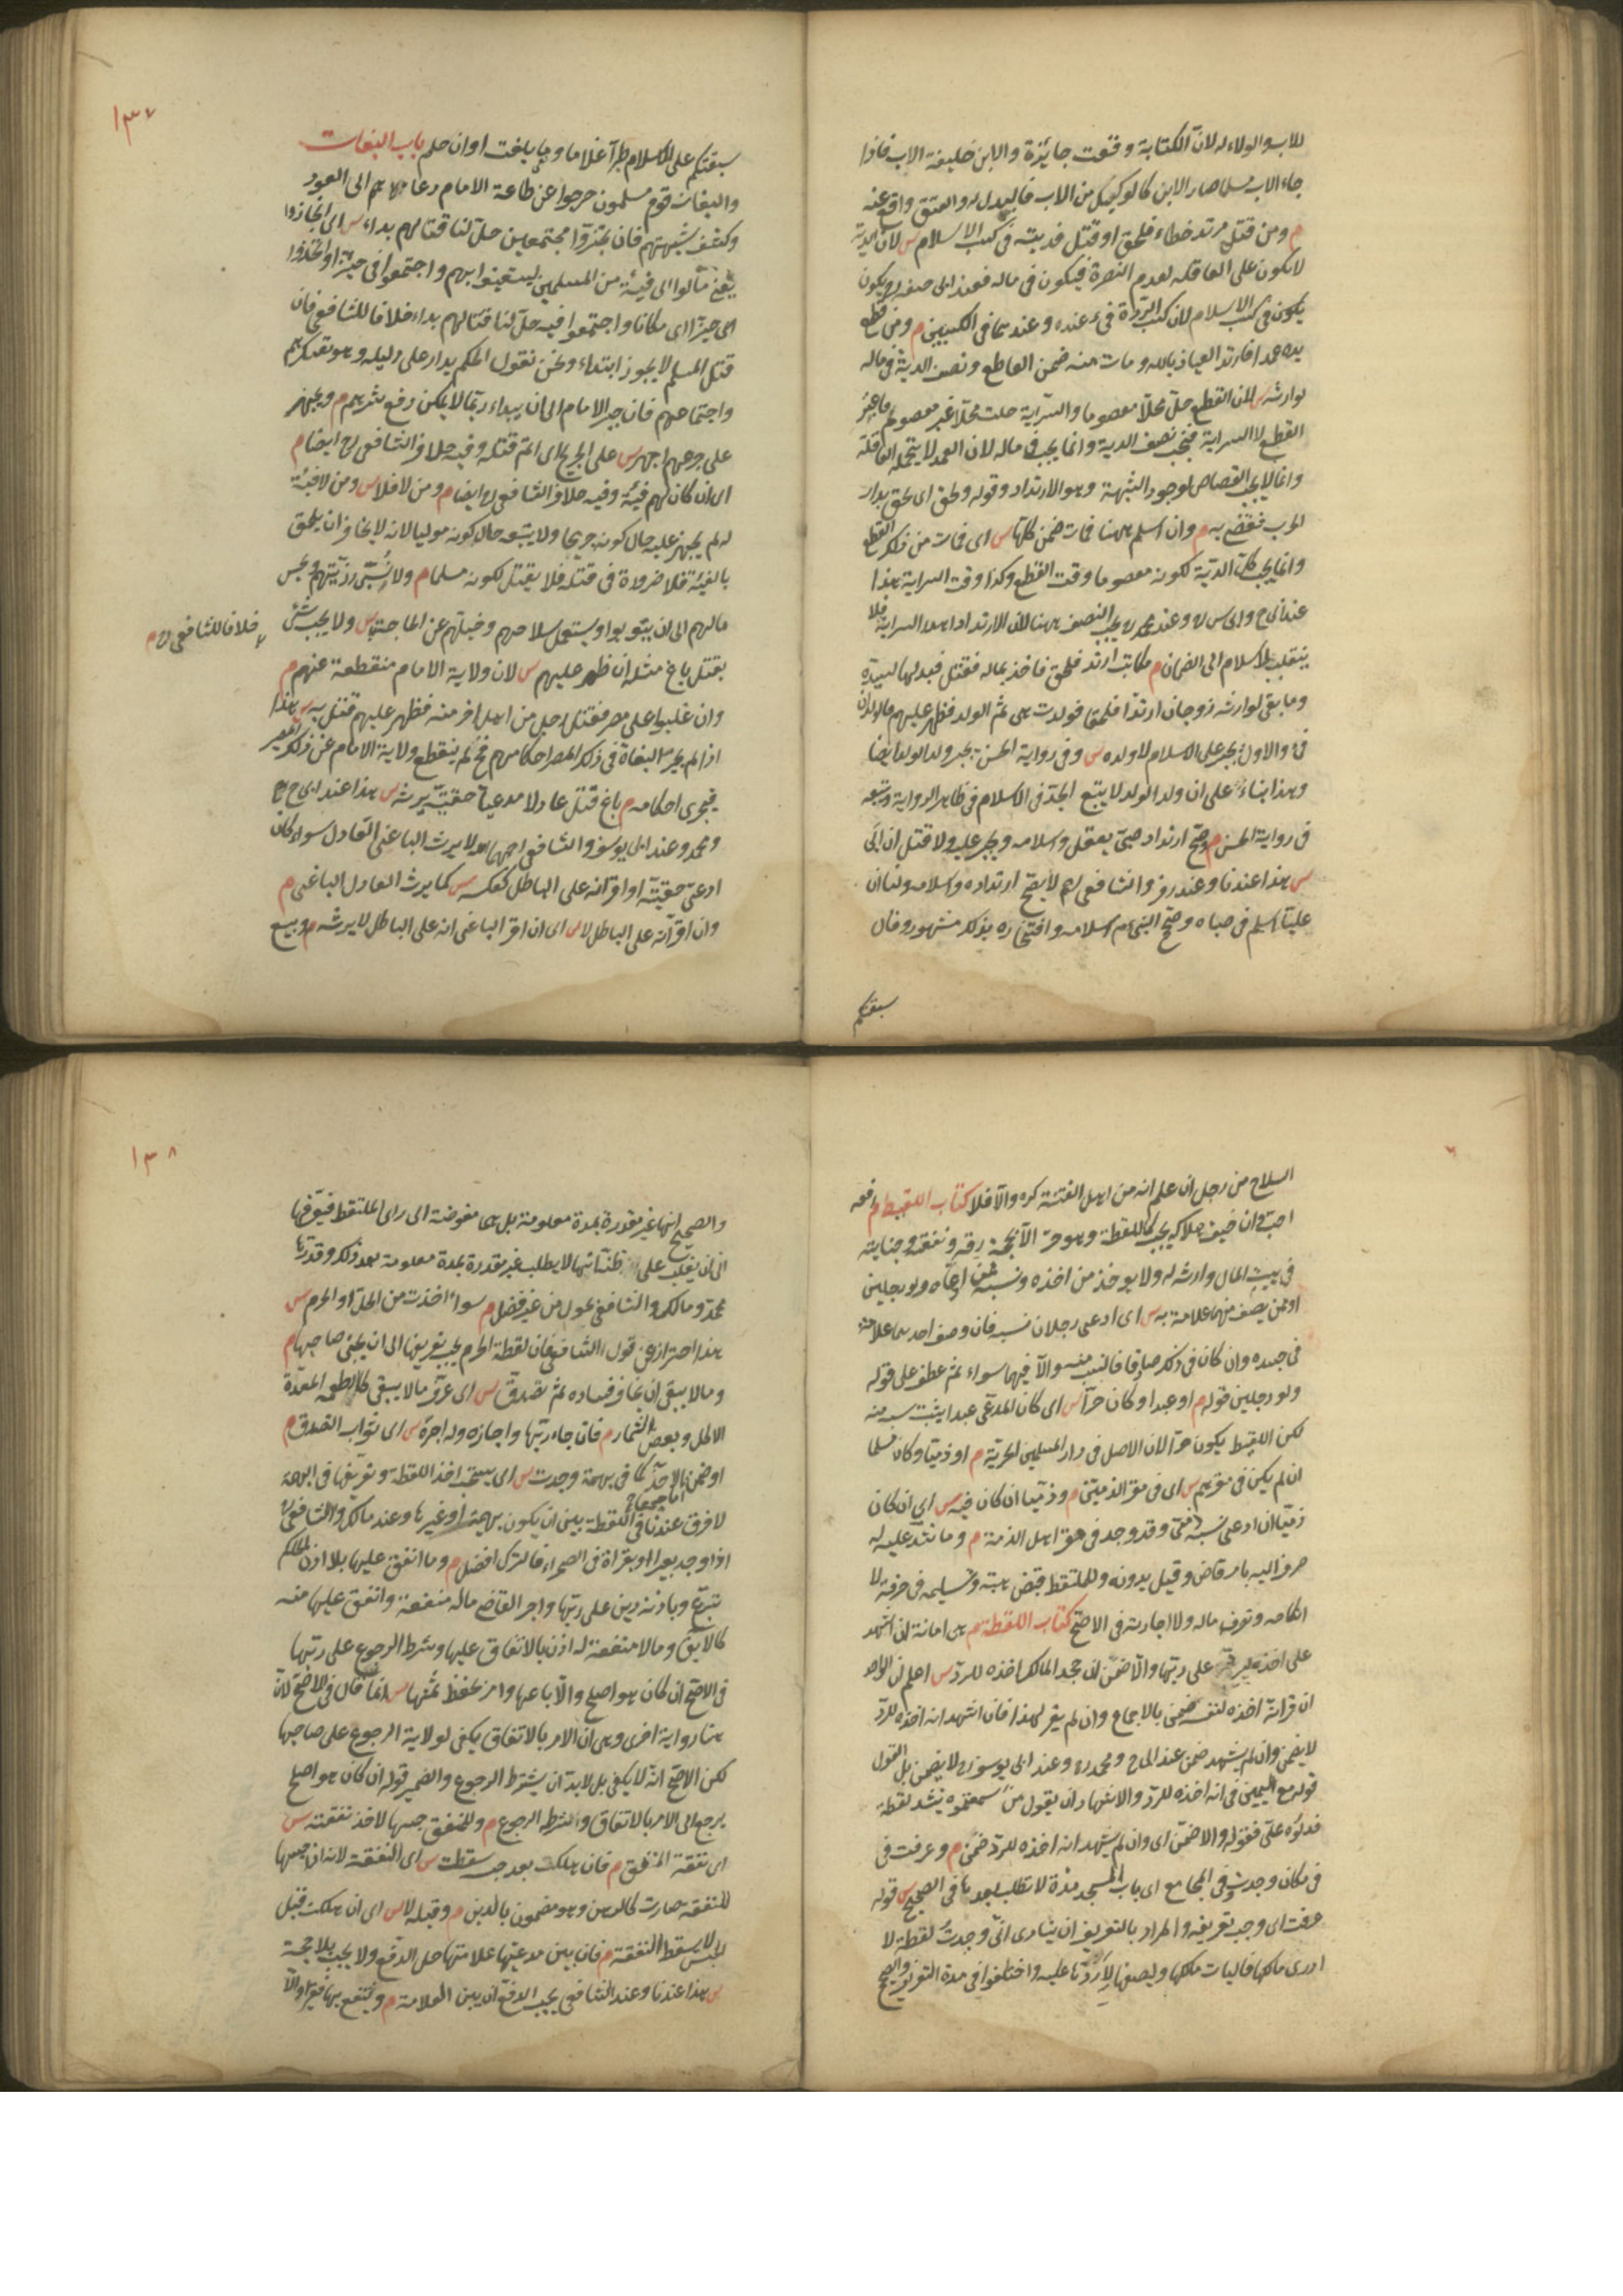 للاب والولاء له لان الكتابة وقعت جايزة والابن خليفة الاب فاذا
جاء الاب مسلما صار الابن كالوكيل من الاب فالبدل له والعتق واقع عنه
م ومن قتل مرتد خطاء فلحق او قتل فديته فى كسب الاسلام س لان الدية
لا تكون على العاقلة لعدم النصرة فيكون فى ماله فعند ابى حنيفه رح يكون
يكون فى كسب الاسلام لان كسب الردة فىء عنده وعندهما فى الكسبين م ومن قطع
يده عمدا فارتد العياذ بالله ومات منه ضمن القاطع ونصف الدية فى ماله
لوارثه س لان القطع حل محلا معصوما والسراية حلت محلا غير معصوم
القطع لا السراية فيجب نصف الدية وانما يجب فى ماله لان العمد لا يتحمله العاقلة
وانما لا يجب القصاص لوجود الشبهة وهو الارتداد وقوله ولحق اى لحق بدار
الحرب فقضى به م وان اسلم ههنا فمات ضمن كلها س اى فمات من ذلك القطع
وانما يجب كل الدية لكونه معصوما وقت القطع وكذا وقت السراية هذا
عند ابى ح وابى س رح وعند محمد رح يجب النصف ههنا لان الارتداد اهدر السراية فلا
ينقلب بالاسلام الى الضمان م مكاتب ارتد فلحق فاخذ بماله فقتل فبدلها لسيده
وما بقى لوارثه زوجان ارتدا فلحقا فولدت هى ثم الولد فظهر عليهم فالولدان
فىء والاول يجبر على الاسلام لا ولده س وفى رواية الحسن يجبر ولد الولد ايضا
وهذا بناء على ان ولد الولد لا يتبع الجد فى الاسلام فى ظاهر الرواية ويتبعه
فى رواية الحسن م وصح ارتداد صبى يعقل واسلامه ويجبر عليه ولا قتل ان ابى
س هذا عندنا وعند زفر والشافعى رح لا يصح ارتداده واسلامه ولنا ان
عليا اسلم فى صباه وصحح النبى عم اسلامه وافتخاره بذلك مشهور وقال
سبقتكم
١٣٧
سبقتكم على الاسلام طرا غلاما ما بلغت اوان حلم باب البغات
والبغات قوم مسلمون خرجوا عن طاعة الامام دعاهم الى العود
وكشف شبهتهم فان تحيزوا مجتمعين حل لنا قتالهم بداء س اى انحازوا
يعنى مالوا الى فيئة من المسلمين ليستعينوا بهم واجتمعوا فى حيز او اتخذوا
اى حيزا اى مكانا واجتمعوا فيه حل لنا قتالهم بداء خلافا للشافعى فان
قتل المسلم لا يجوز ابتداء ونحن نقول الحكم يدار على دليله وهو تعسكرهم
واجتماعهم فان صبر الامام الى ان يبداء ربما لا يمكن دفع شرهم م ويجهز
على جريحهم اجهز س على الجريح اى اتم قتله وفيه خلاف الشافعى رح ايضا م
اى ان كان لهم فيئة وفيه خلاف الشافعى رح ايضا م ومن لا فلا س ومن لا فيئة
له لم يجهز عليه حال كونه جريحا ولا يتبعه حال كونه موليا لانه لا يخاف ان يلحق
بالفيئة فلا ضرورة فى قتله فلا يقتل لكونه مسلما م ولا تسبى ذريتهم وحبس
مالهم الى ان يتوبوا ويستعمل سلاحهم وخيلهم عند الحاجة س ولا يجب شىء
خلافا للشافعى رح م
بقتل باغ مثله ان ظهر عليهم س لان ولاية الامام منقطعة عنهم م
وان غلبوا على مصر فقتل رجل من اهله اخر منه فظهر عليهم قتل به س هذا
اذا لم يجر البغاة فى ذلك المصر احكامهم فح لم ينقطع ولاية الامام عن ذلك المصر
فيجرى احكامه م باغ قتل عادلا مدعيا حقيته يرثه س هذا عند ابى ح رح
ومحمد وعند ابى يوسف والشافعى رحمهما الله لا يرث الباغى العادل سواء كان
ادعى حقيته او اقر انه على الباطل كعكسه س كما يرث العادل الباغى م
وان اقر انه على الباطل لا س اى ان اقر الباغى انه على الباطل لا يرثه م وبيع
السلاح من رجل ان علم انه من اهل الفتنة كره والا فلا كتاب اللقيط م رفعه
احب وان خيف هلاكه يجب كاللقطة وهو حر الا بحجة رقه ونفقته وجنايته
فى بيت المال وارثه له ولا يوخذ من اخذه ونسبه ممن ادعاه ولو رجلين
او ممن يصف منهما علامة به س اى ادعى رجلان نسبه فان وصف احدهما علامة
فى جسده وان كان فى ذلك صادقا فالنسب منه والا فيهما سواء ثم عطف على قوله
ولو رجلين قوله م او عبدا وكان حرا س اى كان المدعى عبدا يثبت نسبه منه
لكن اللقيط يكون حرا لان الاصل فى دار المسلمين الحرية م او ذميا وكان مسلما
ان لم يكن فى مقرهم س اى فى مقر الذميين م وذميا ان كان فيه س اى ان كان
ذميا ان ادعى نسبه ذمى وقد وجد فى مقر اهل الذمة م وما شد عليه له
صرف اليه بامر قاض وقيل بدونه وللملتقط قبض هبته وتسليمه فى حرفة لا
انكاحه وتصرف ماله ولا اجارته فى الاصح كتاب اللقطة م هى امانة ان اشهد
على اخذه ليرد على ربها والا ضمن ان جحد المالك اخذه للرد س اعلم ان الواجد
ان اقر انه اخذه لنفسه ضمن بالاجماع وان لم يقر بهذا فان اشهد انه اخذه للرد
لا يضمن وان لم يشهد ضمن عند ابى ح ومحمد رح وعند ابى يوسف رح لا يضمن بل القول
قوله مع اليمين فى انه اخذه للرد والاشهاد ان يقول من سمعتموه ينشد لقطة
فدلوه على فقوله والا ضمن اى وان لم يشهد انه اخذه للرد ضمن م وعرفت فى
فى مكان وجدت وفى المجامع اى باب المسجد مدة لا تطلب بعدها فى الصحيح س قوله
عرفت اى وجب تعريفه والمراد بالتعريف ان ينادى انى وجدت لقطة لا
ادرى مالكها فاليات مالكها وليصفها لاردها عليه واختلفوا فى مدة التعريف والصحيح
١٣٨
والصحيح انها غير مقدرة بمدة معلومة بل هى مفوضة الى راى الملتقط فيعرفها
الى ان يغلب على ظنه انها لا يطلب غير مقدرة بمدة معلومة بعد ذلك وقدرها
محمد ومالك والشافعى بحول من غير فضل م سواء اخذت من الحل او الحرم س
هذا احتراز عن قول الشافعى فان لقطة الحرم يجب تعريفها الى ان يجئ صاحبها م
وما لا يبقى الى ان يخاف فساده ثم تصدق س اى عرف ما لا يبقى كالاطعمة المعدة
للاكل وبعض الثمار م فان جاء ربها واجازه وله اجره س اى ثواب التصدق م
او ضمن الاخذ كما فى بهيمة وجدت س اى يستحب اخذ اللقطة وتعريفها فى البهيمة
لا فرق عندنا فى اللقطة بين ان يكون بهيمة او غيرها وعند مالك والشافعى رح
اذا وجد بعيرا او بقراة فى الصحراء فالترك افضل م وما انفق عليها بلا اذن الحاكم
تبرع وباذنه دين على ربها واجر القاضى ماله منفعة وانفق عليها منه
كالابق وما لا منفعة له اذن بالانفاق عليها وشرط الرجوع على ربها
فى الاصح ان كان هو اصلح والا باعها وامر بحفظ ثمنها س انما قال فى الاصح لان
هنا رواية اخرى وهى ان الامر بالانفاق يكفى لولاية الرجوع على صاحبها
لكن الاصح انه لا يكفى بل لا بد ان يشترط الرجوع والضمير قوله ان كان هو اصلح
يرجع الى الامر بالانفاق والشرط الرجوع م وللمنفق حبسها لاخذ نفقته س
اى نفقة المنفق م فان هلكت بعد حبسه سقطت س اى النفقة لانه ان حبسها
للنفقة صارت كالرهن وهو مضمون بالدين م وقبله لا س اى ان هلكت قبل
الحبس لا يسقط النفقة م فان بين مدعيها علامتها حل الدفع ولا يجب بلا حجة
س هذا عندنا وعند الشافعى يجب الدفع ان بين العلامة م وينتفع بها فقيرا والا